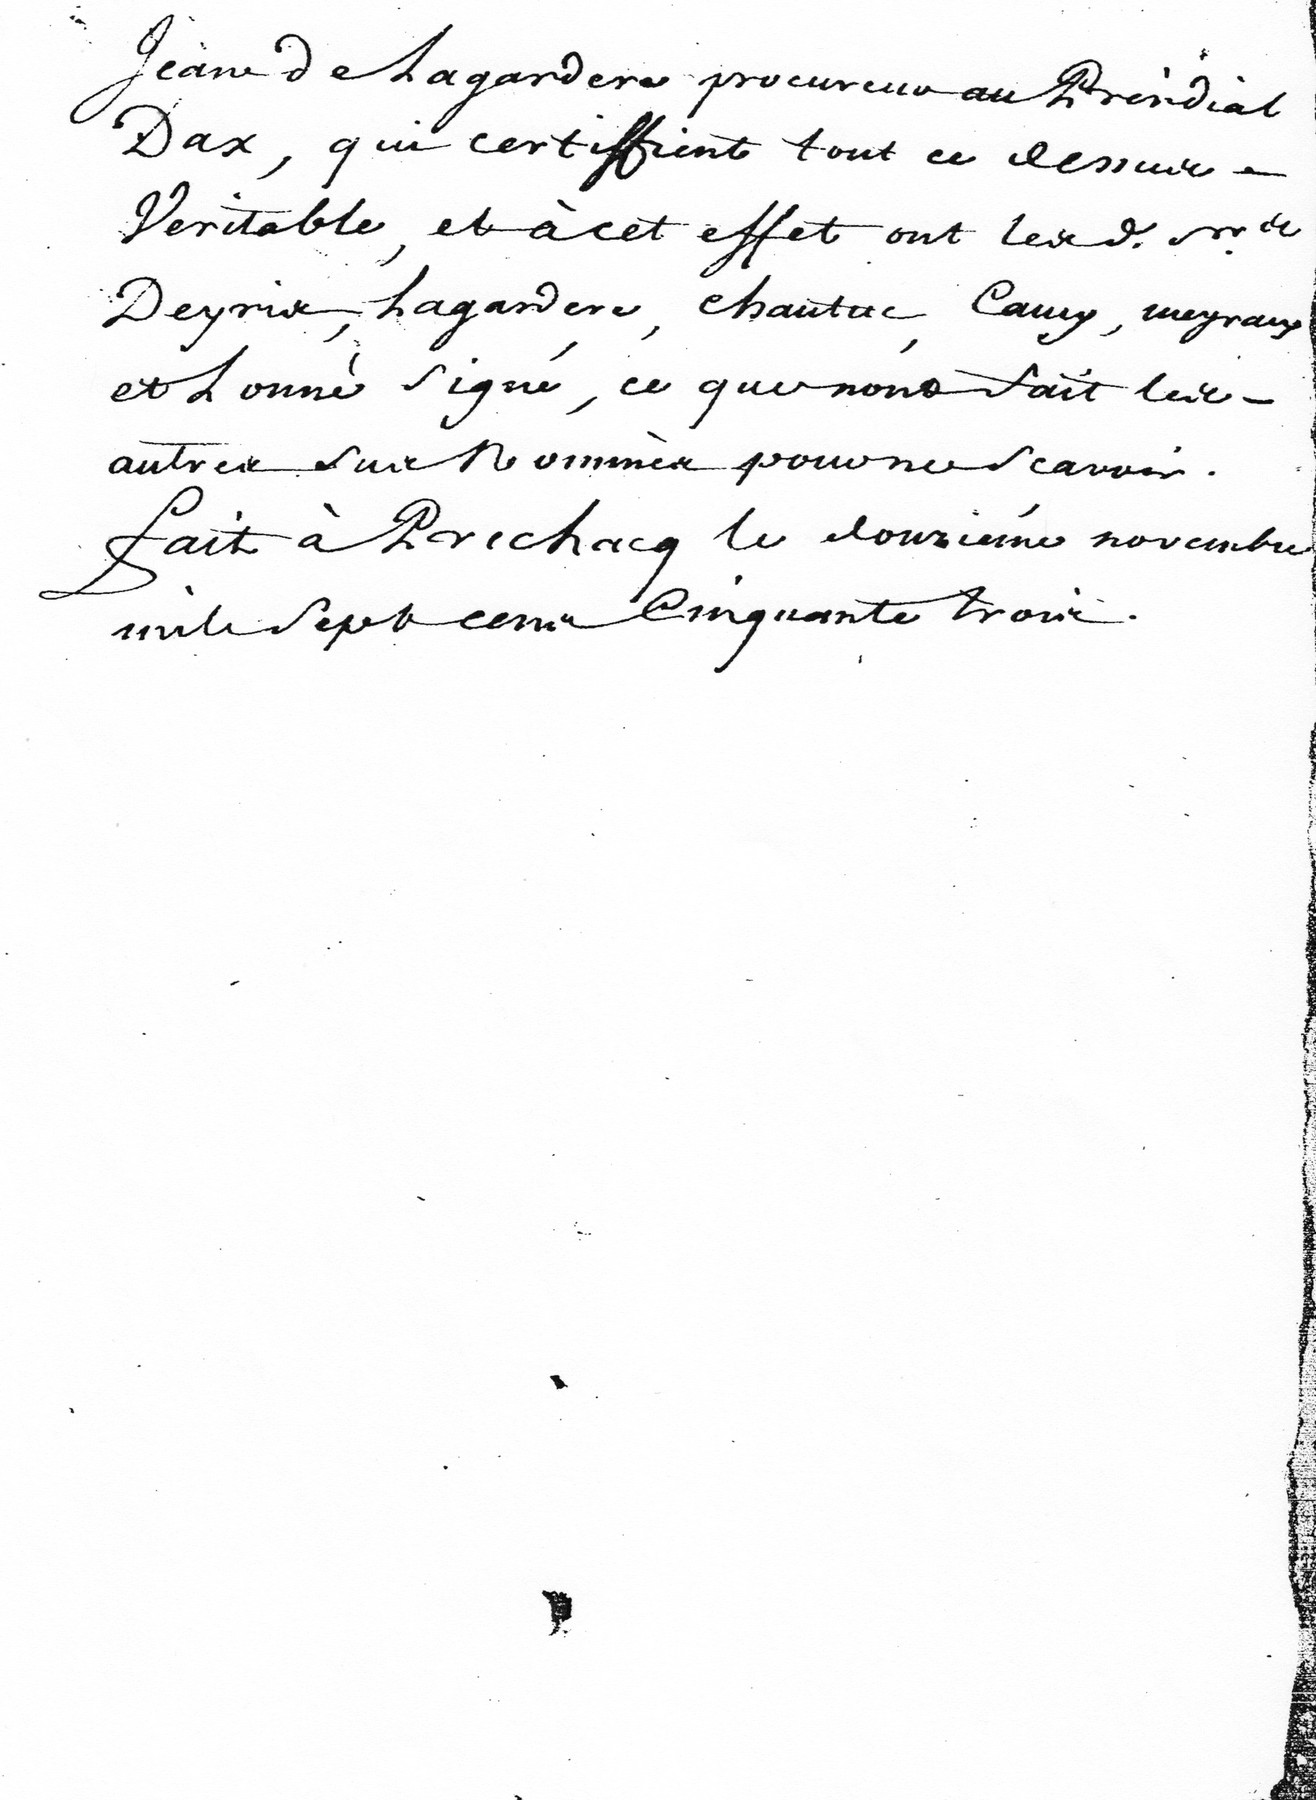 Jean de Lagardere procureur au Présidial
Dax, qui certiffient tout ce dessus -
Veritable, et à cet effet ont lesd. srs. de
Deyris, Lagardere, Chautuc, Camy, meyrany
et Lonné signé, ce que nont fait les -
autres sus Nommès pour ne scavoir.
fait à Prechacq le douziéme novembre
mile sept cens Cinquante trois.